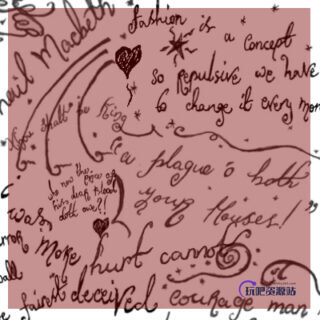 neil Macbeth
fashion is
a concept
so repulsive we have
to change it every mon
You shall be King
"a plague o both
your Houses!"
who now the price of
his dear blood
doth owe?!
was
error more hurt cannot
ball
fairest deceived courage man
玩吧资源站